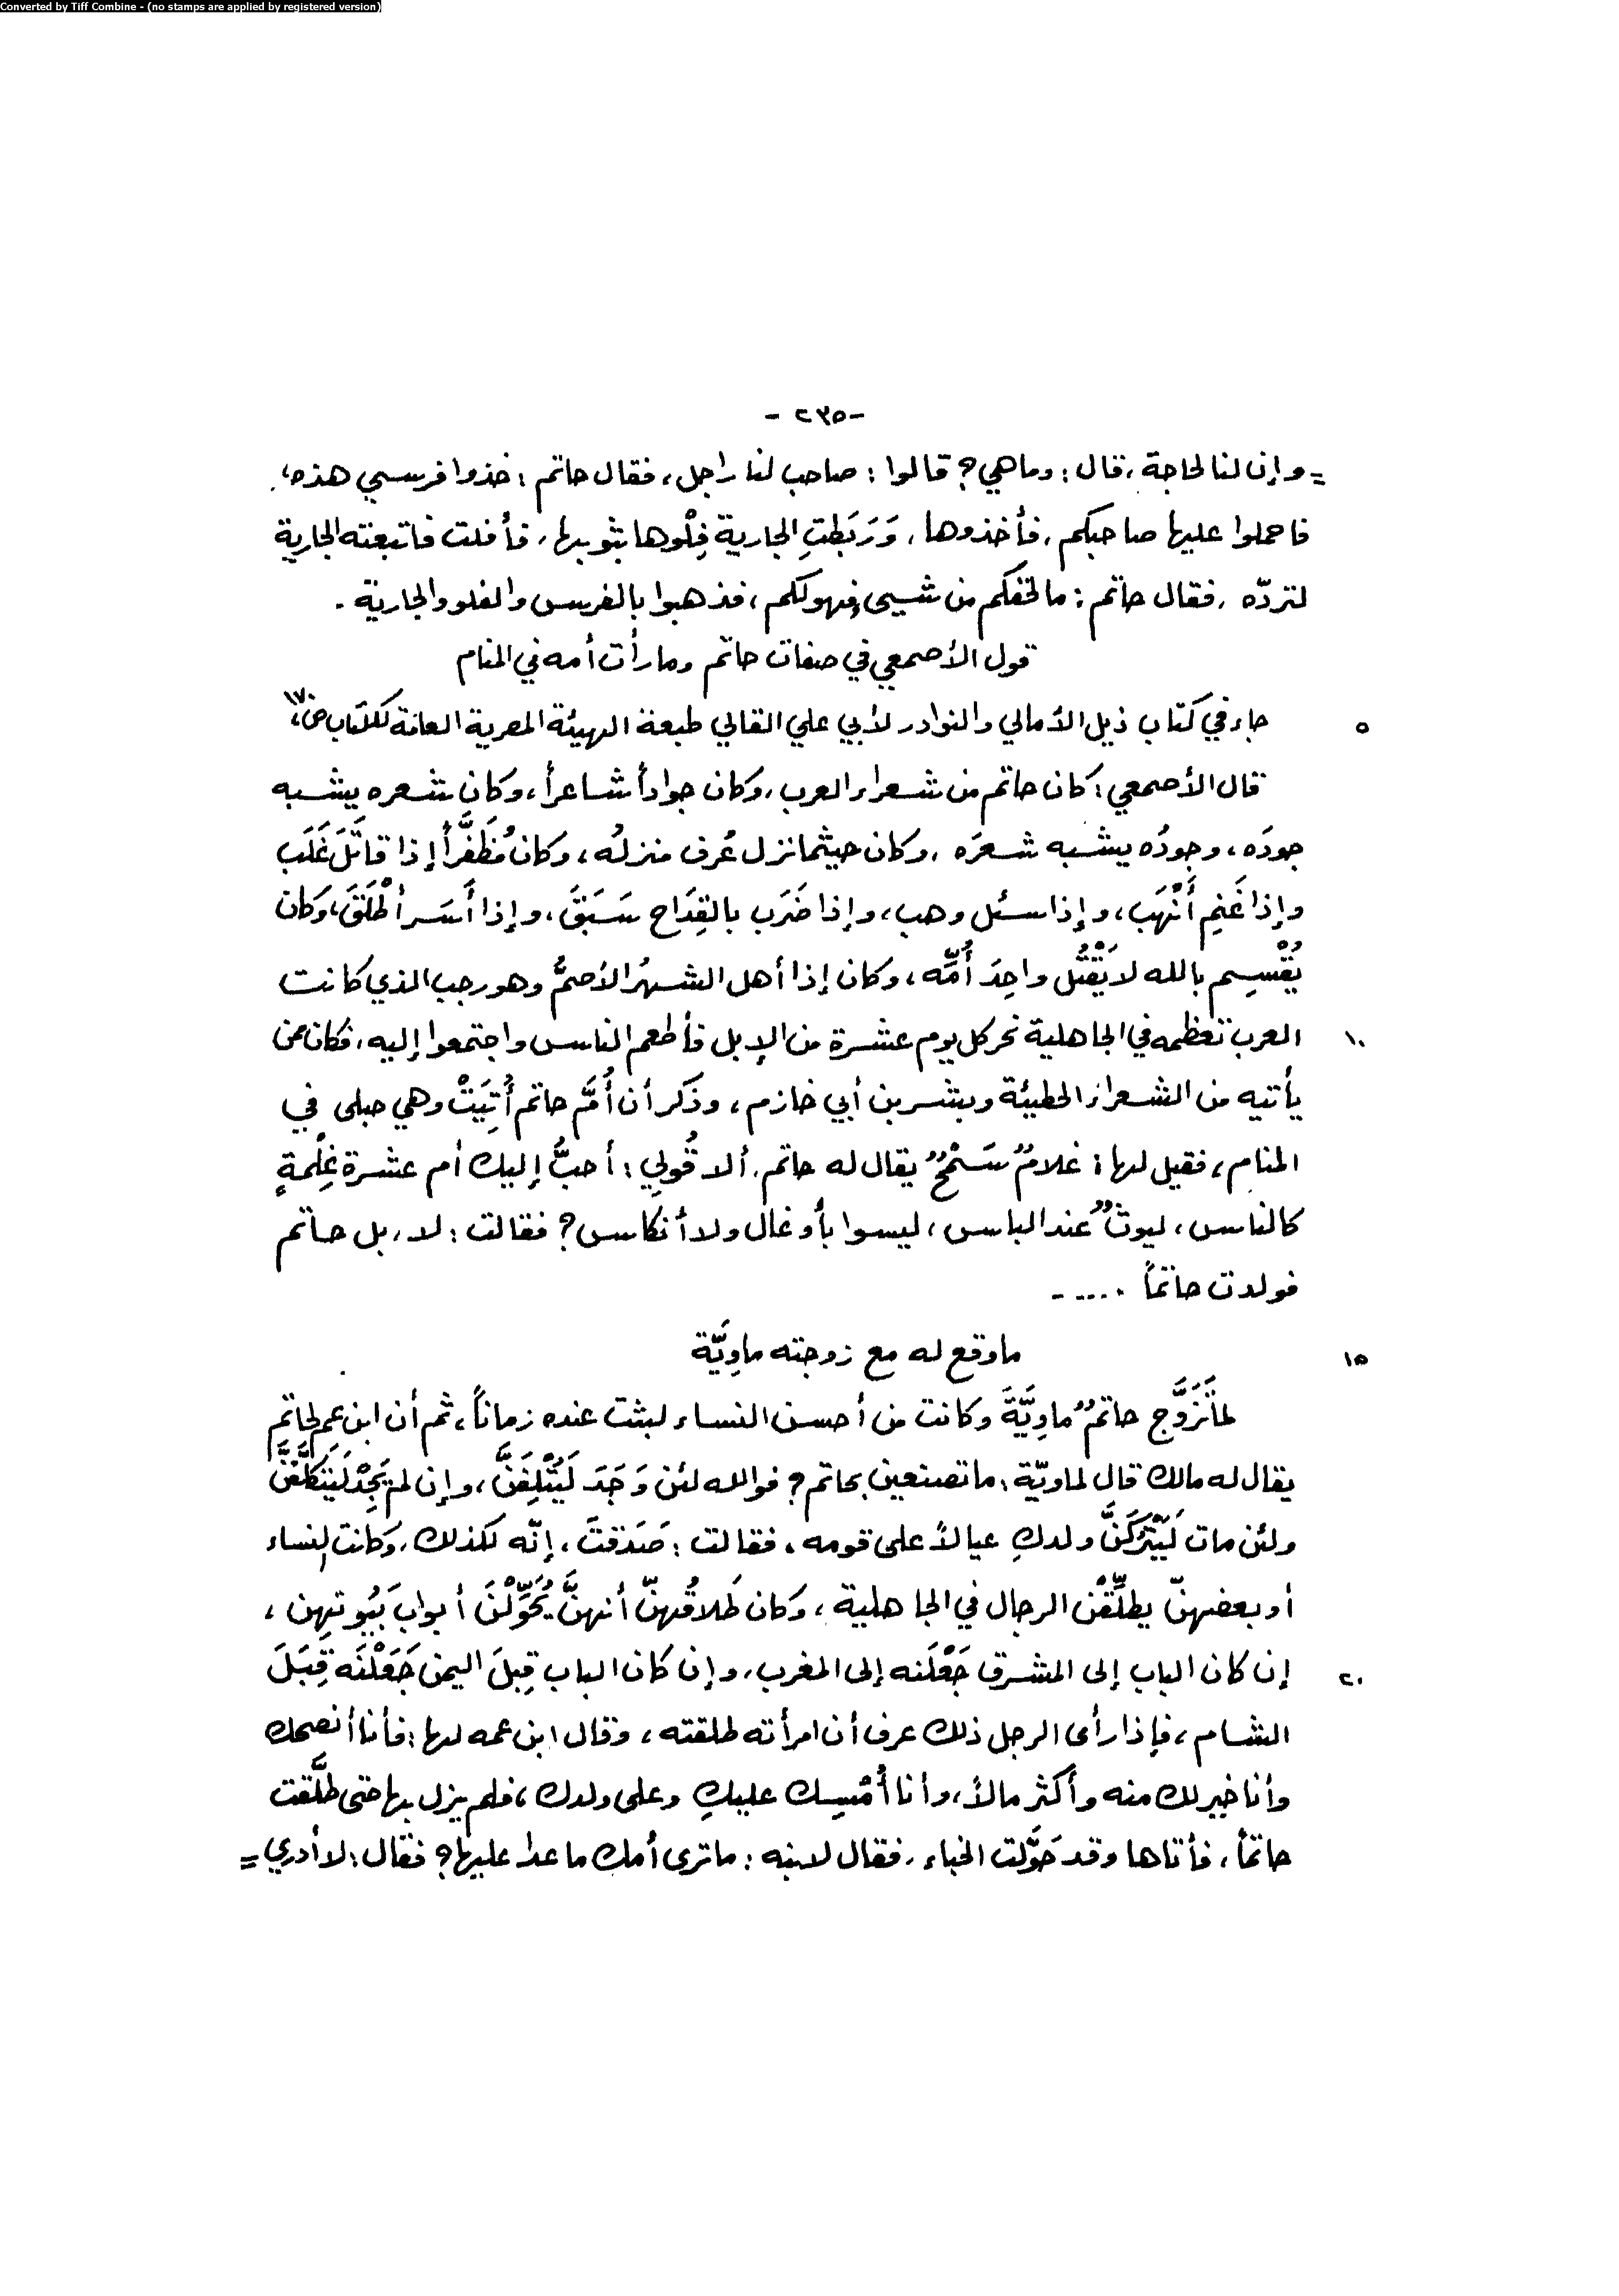 Converted by Tiff Combine - (no stamps are applied by registered version)
- ٢٣٥ -
= وإن لنا لحاجة ، قال : وما هي ؟ قالوا : صاحب لنا راجل ، فقال حاتم : خذوا فرسي هذه ،
فاحملوا عليها صاحبكم ، فأخذوها ، وَرَبَطتِ الجارية فِلْوها بثوبها ، فأفلت فاتبعته الجارية
لتردّه ، فقال حاتم : ما لحقكم من شيىءٍ فهو لكم ، فذهبوا بالفرس والفلو والجارية .
قول الأصمعي في صفات حاتم وما رأت أمه في المنام
٥ جاء في كتاب ذيل الأمالي والنوادر لأبي علي القالي طبعة الهيئة المصرية العامة للكتاب ص ، ١٧٠
قال الأصمعي : كان حاتم من شعراء العرب ، وكان جواداً شاعراً ، وكان شعره يشبه
جودَه ، وجودُه يشبه شعرَه ، وكان حيثما نزل عُرف منزلُه ، وكان مُظَفَّراً إذا قاتَلَ غَلَب
وإذا غَنِم أَنْهَب ، وإذا سئل وهب ، وإذا ضَرَب بالقِدَاح سَبَقَ ، وإذا أَسَر أطْلَقَ ، وَكان
يُقْسِم بالله لا يَقْتُل واحِدَ أُمِّه ، وكان إذا أهل الشهرُ الأصمُّ وهو رجب الذي كانت
١٠ العرب تعظمه في الجاهلية نحر كل يوم عشرة من الإبل فأطعم الناس واجتمعوا إليه ، فكان ممن
يأتيه من الشعراء الحطيئة وبشر بن أبي خازم ، وذكر أن أُمَّ حاتم أُتِيَتْ وهي حبلى في
المنام ، فقيل لها : غلامٌ سَمْحٌ يقال له حاتم . ألا قُولي : أحبُّ إليك أم عشرة غِلْمةٍ
كالناس ، ليوثٌ عند الباس ، ليسوا بأوغال ولا أنكاس ؟ فقالت : لا ، بل حاتم
فولدت حاتماً ..... -
١٥ ما وقع له مع زوجته ماوِيَّة
لما تَزَوَّج حاتمٌ ماوِيَّةَ وكانت من أحسن النساء لبثت عنده زماناً ، ثم أن ابن عم لحاتم
يقال له مالك قال لماويّة : ما تصنعين بحاتم ؟ فوالله لئن وَجَدَ لَيُتْلِفَنَّ ، وإن لم يَجِدْ لَيَتَكَلَّفَنَّ
ولئن مات لَيَتْرُكَنَّ ولدكِ عيالاً على قومه ، فقالت : صَدَقتَ ، إنّه لكذلك ، وَكانت النساء
أو بعضهنّ يطلِّقْن الرجال في الجاهلية ، وَكان طَلاقُهنّ أنهنَّ يُحَوِّلْنَ أبوابَ بَيُوتهن ،
٢٠ إن كان الباب إلى المشرق جَعْلَنه إلى المغرب ، وإن كان الباب قِبلَ اليمن جَعَلْنَه قِبَلَ
الشام ، فإذا رأى الرجل ذلك عرف أن امرأته طلقته ، وقال ابن عمه لها : فأنا أنصحك
وأنا خير لك منه وأكثر مالاً ، وأنا أُمْسِك عليكِ وعلى ولدك ، فلم يزل بها حتى طلَّقت
حاتماً ، فأتاها وقد حَوَّلت الخباء ، فقال لابنه : ما ترى أمك ما عدا عليها ؟ فقال : لا أدري =